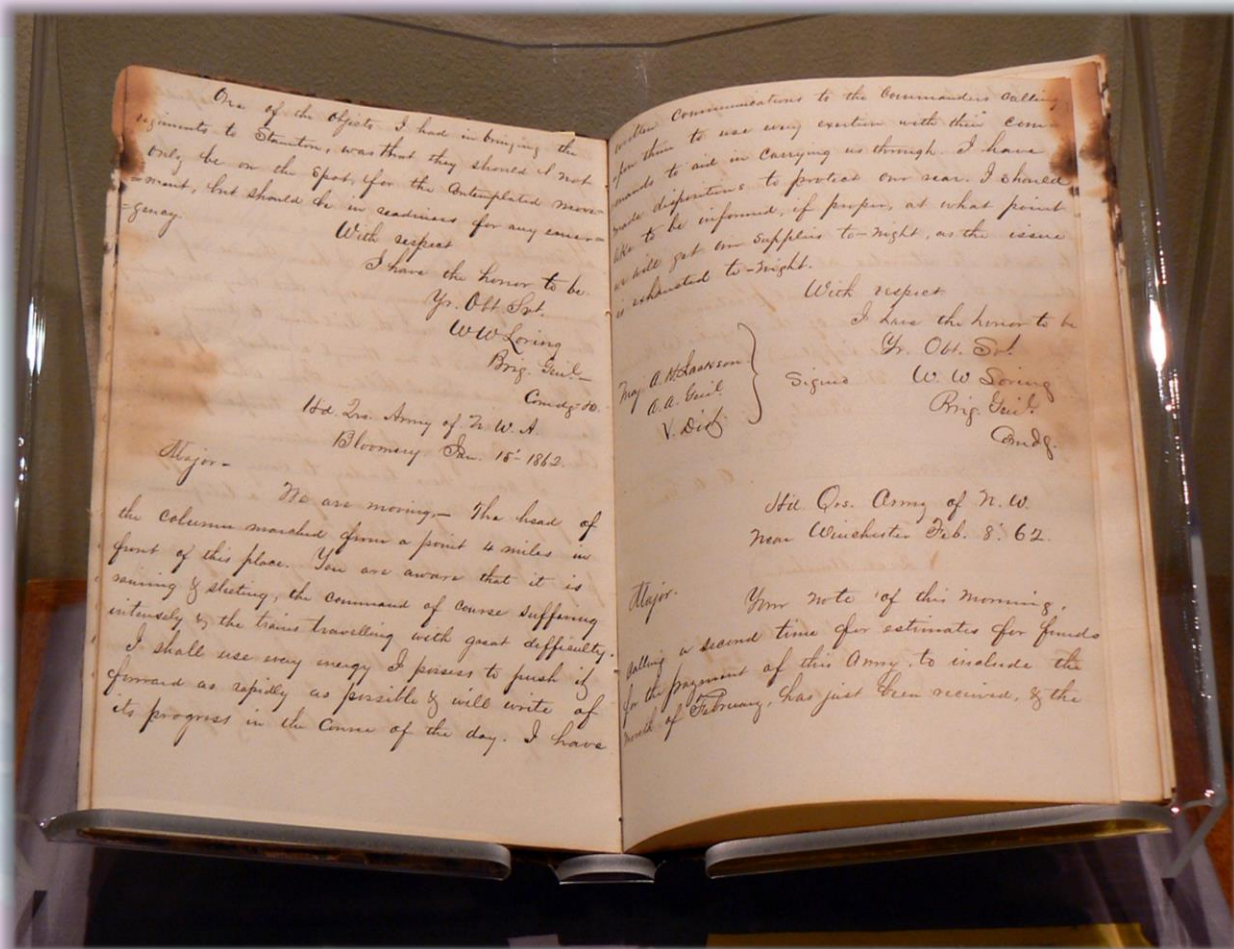 One of the objects I had in bringing the
regiments to Staunton, was that they should not
only be on the spot, for the contemplated move=
=ment, but should be in readiness for any emer=
=gency.
With respect
I have the honor to be
Yr. Obt Svt.
W W Loring
Brig. Genl.
Comdg
Hd. Qrs. Army of N. W. A.
Bloomery Jan. 15' 1862.
Major—
We are moving.— The head of
the column marched from a point 4 miles in
front of this place. You are aware that it is
raining & sleeting, the command of course suffering
intensely & the trains travelling with great difficulty.
I shall use every energy I possess to push it
forward as rapidly as possible & will write of
its progress in the course of the day. I have
written communications to the Commanders calling
upon them to use every exertion with their com=
mands to aid in carrying us through. I have
made dispositions to protect our rear. I should
like to be informed, if proper, at what point
we will get our supplies to-night, as the issue
is exhausted to-night.
With respect
I have the honor to be
Yr. Obt. Svt.
Signed W. W Loring
Brig. Genl.
Comdg.
Maj. A. H. Jackson
A. A. Genl.
V. Dist.
Hd. Qrs. Army of N. W.
Near Winchester Feb. 8' 62.
Major.
Your note of this morning,
calling a second time for estimates for funds
for the payment of this Army, to include the
month of February, has just been received, & the